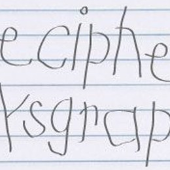 eciphe
ysgrap